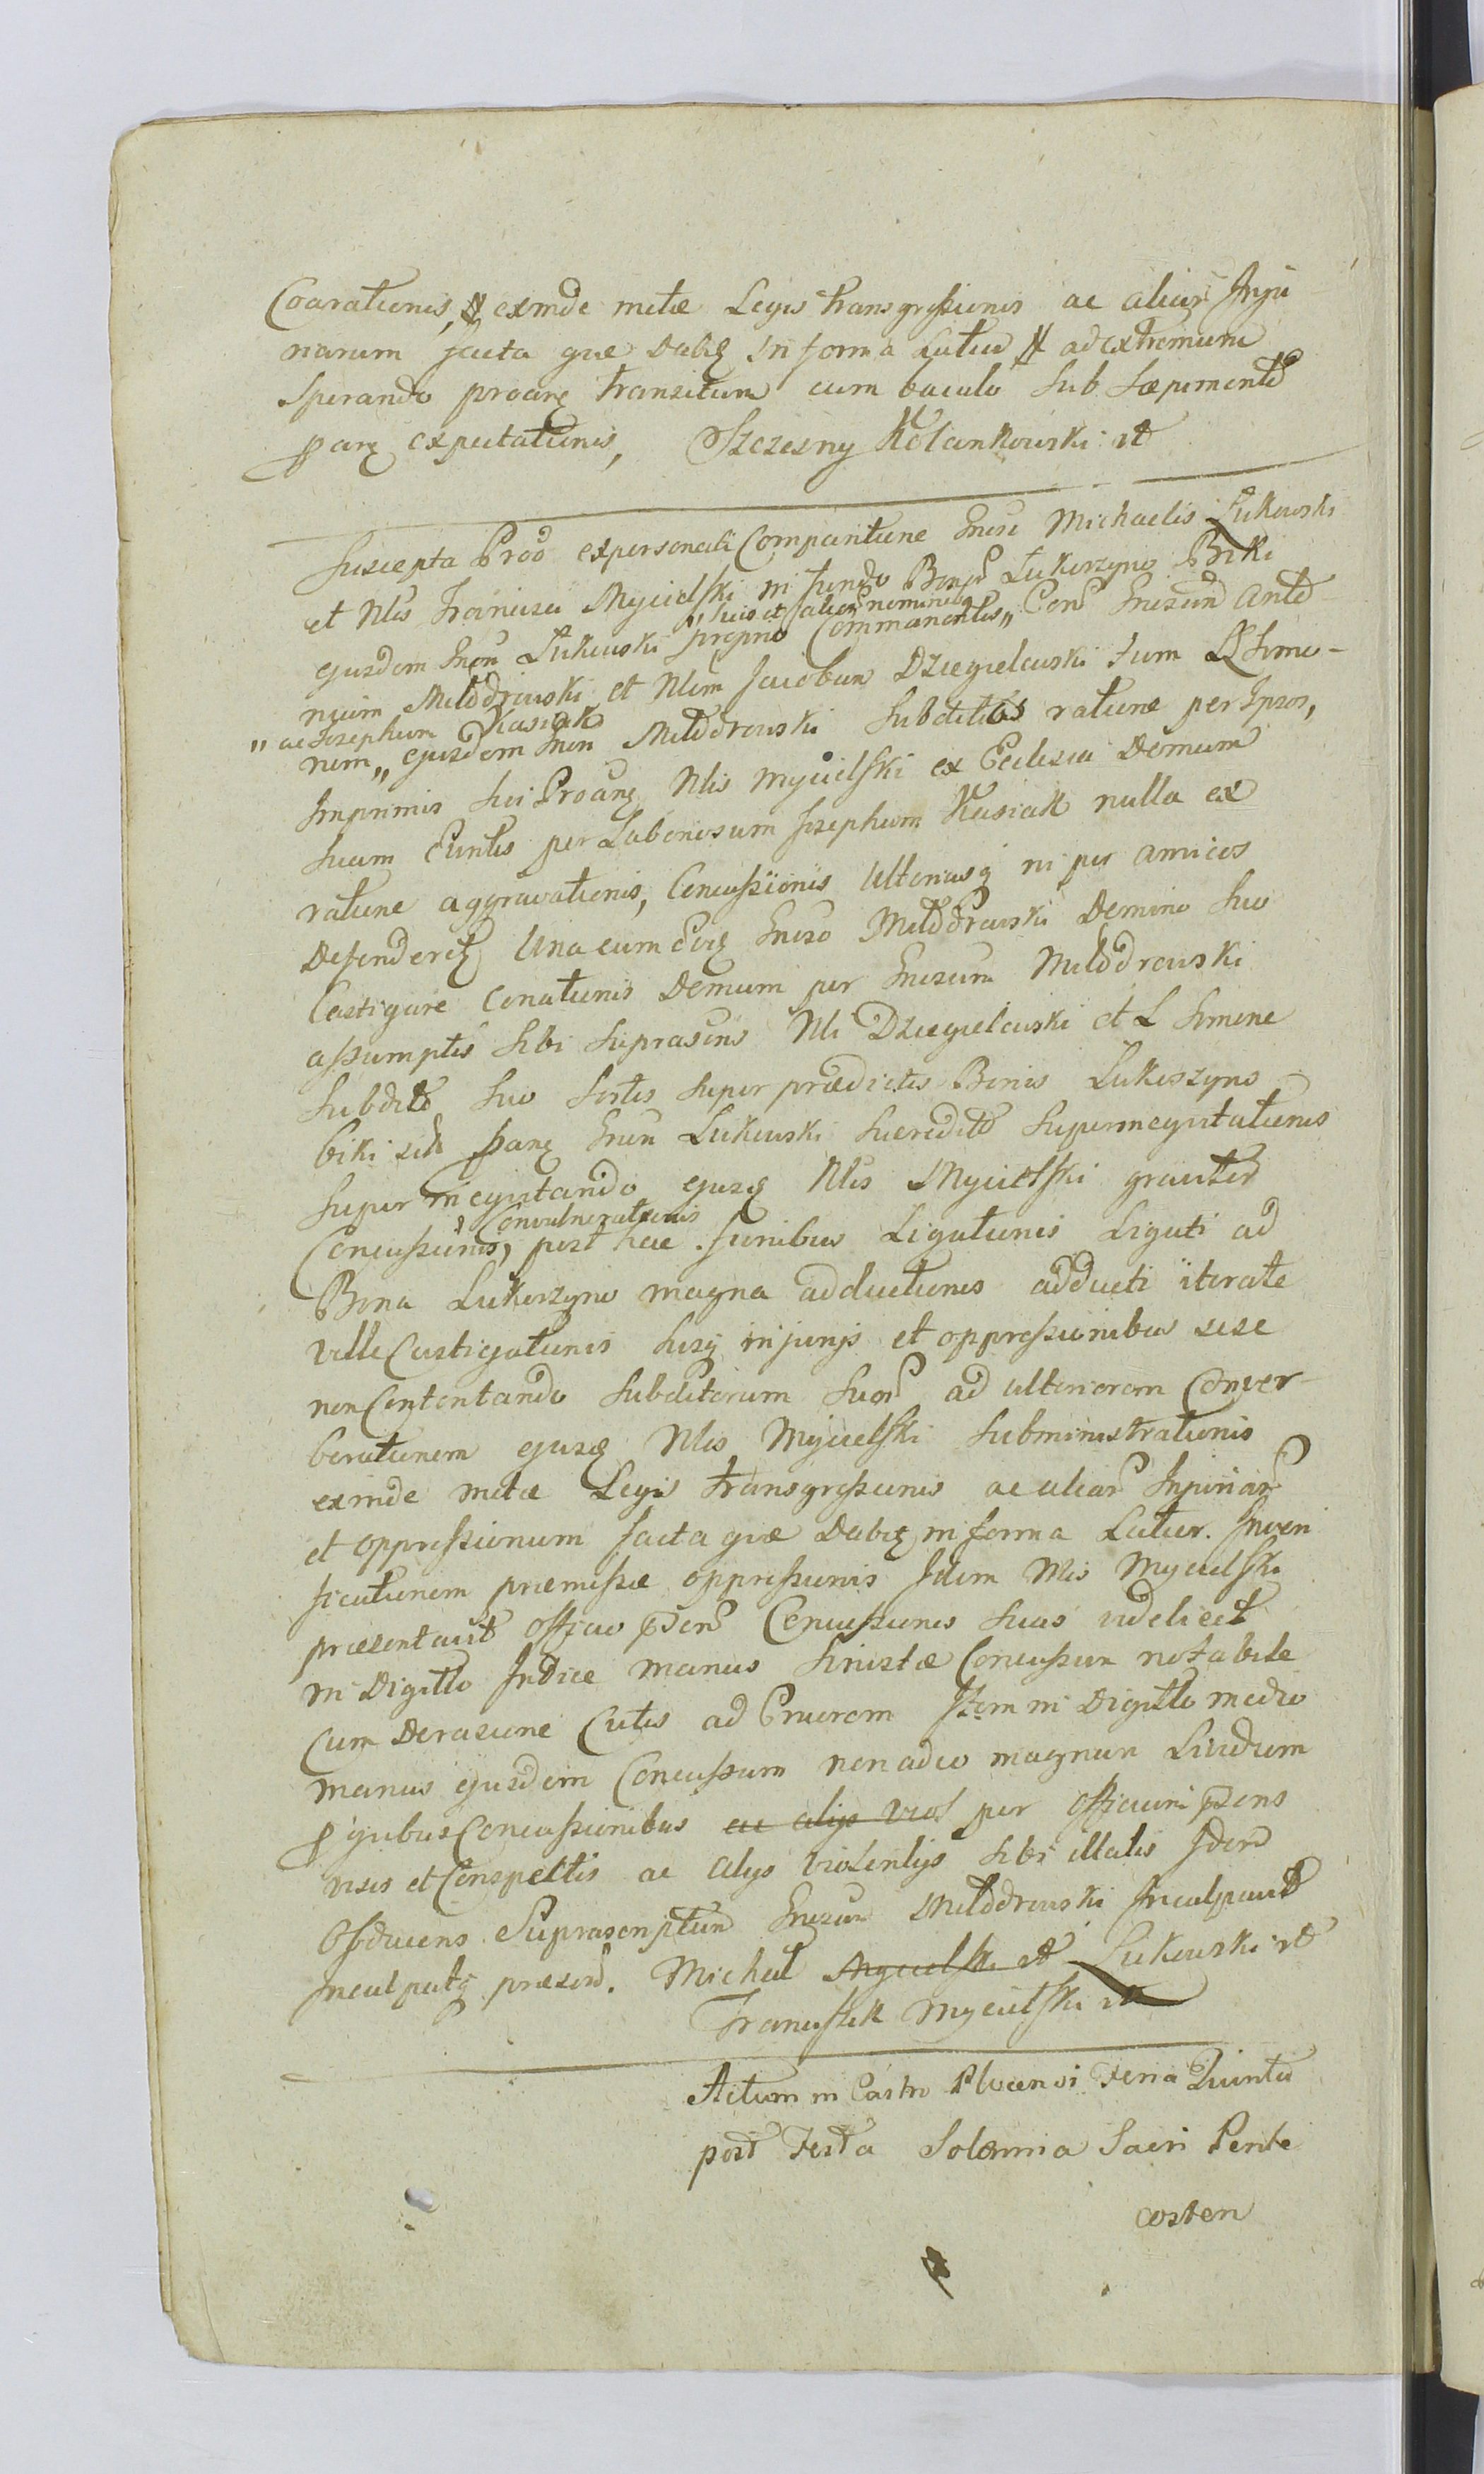 Coarationis, exinde metæ Legis transgressionis ac aliar Inju
riarum facta que Dabz in forma Latur ad extremum
Sperando proang transitum cum baculo sub sæpimento
parg expectationis, Szczesny Kolankowski
Suscepta Prod ex personali Comparitione Gnosi Michaelis Lukowski
et Nlis Francisci Mycielski in fundo Bonor Lukoszyno Biki
suis et alior nominibg
ejusdem Gnen Lukowski proprio Commanentis" Con Gnosum Anto
nium Milodrowski et Nlem Jacobum Dziegielewski tum L Simo-
" ac Josephum Kasiak
nem" ejusdem Gnen Milodrowski Subditos ratione per Ipsos,
Imprimis sui Proang Nlis Mycielski ex Eclesia Domum
suam Euntis per Laboriosum Josephum Kasiak nulla ex
ratione aggravationis, Concussionis Ulteriusq ni per amicos
Defenderetz Una cum Gnoso Milodrowski Domino suo
Castigare Conationis Demum per Gnosum Milodrowski
assumptis sibi suprascris Nli Dziegielewski et L Simone
Subdito suo Sortis super prædictis Bonis Lukoszyno
biki sub parg Gnen Lukowski hæredito superinequitationis
super inequitando ejusg Nlis Mycielski graviter
Convulnerationis
Concussionis, post hæc funibus Ligationis Ligati ad
Bona Lukoszyno magna adductionis adducti iterate
velle Castigationis hisq injurijs et oppressionibus sese
non Contentando Subditorum suor ad ulteriorem Conver-
berationem ejusg Nlis Mycielski Subministrationis
exinde metæ Legis transgressionis ac aliar Injuriar
et oppressionum facta quæ Dabitz in forma Latior. Inveri
ficationem præmissæ oppressionis Idem Nlis Mycielski
præsentavit officio psen Concussiones suas videlicet
in Digitto Indice manus sinistræ Concussum notabile
Cum Derasione Cutis ad Cruorem Item in Digitto medio
manus ejusdem Concussum non adeo magnum Lividum
p quibus Concussionibus ac alijs viol per officium psens
visis et Conspectis ac alijs violentijs sibi illatis Idem
Obducens Suprascriptum Gnosum Milodrowski Inculpavit
inculpatq præsend. Michał Mycielski Lukowski
Franciszek Mycielski
Actum in Castro Plocensi Feria Quinta
post Festa Solemnia Sacri Pente
costen